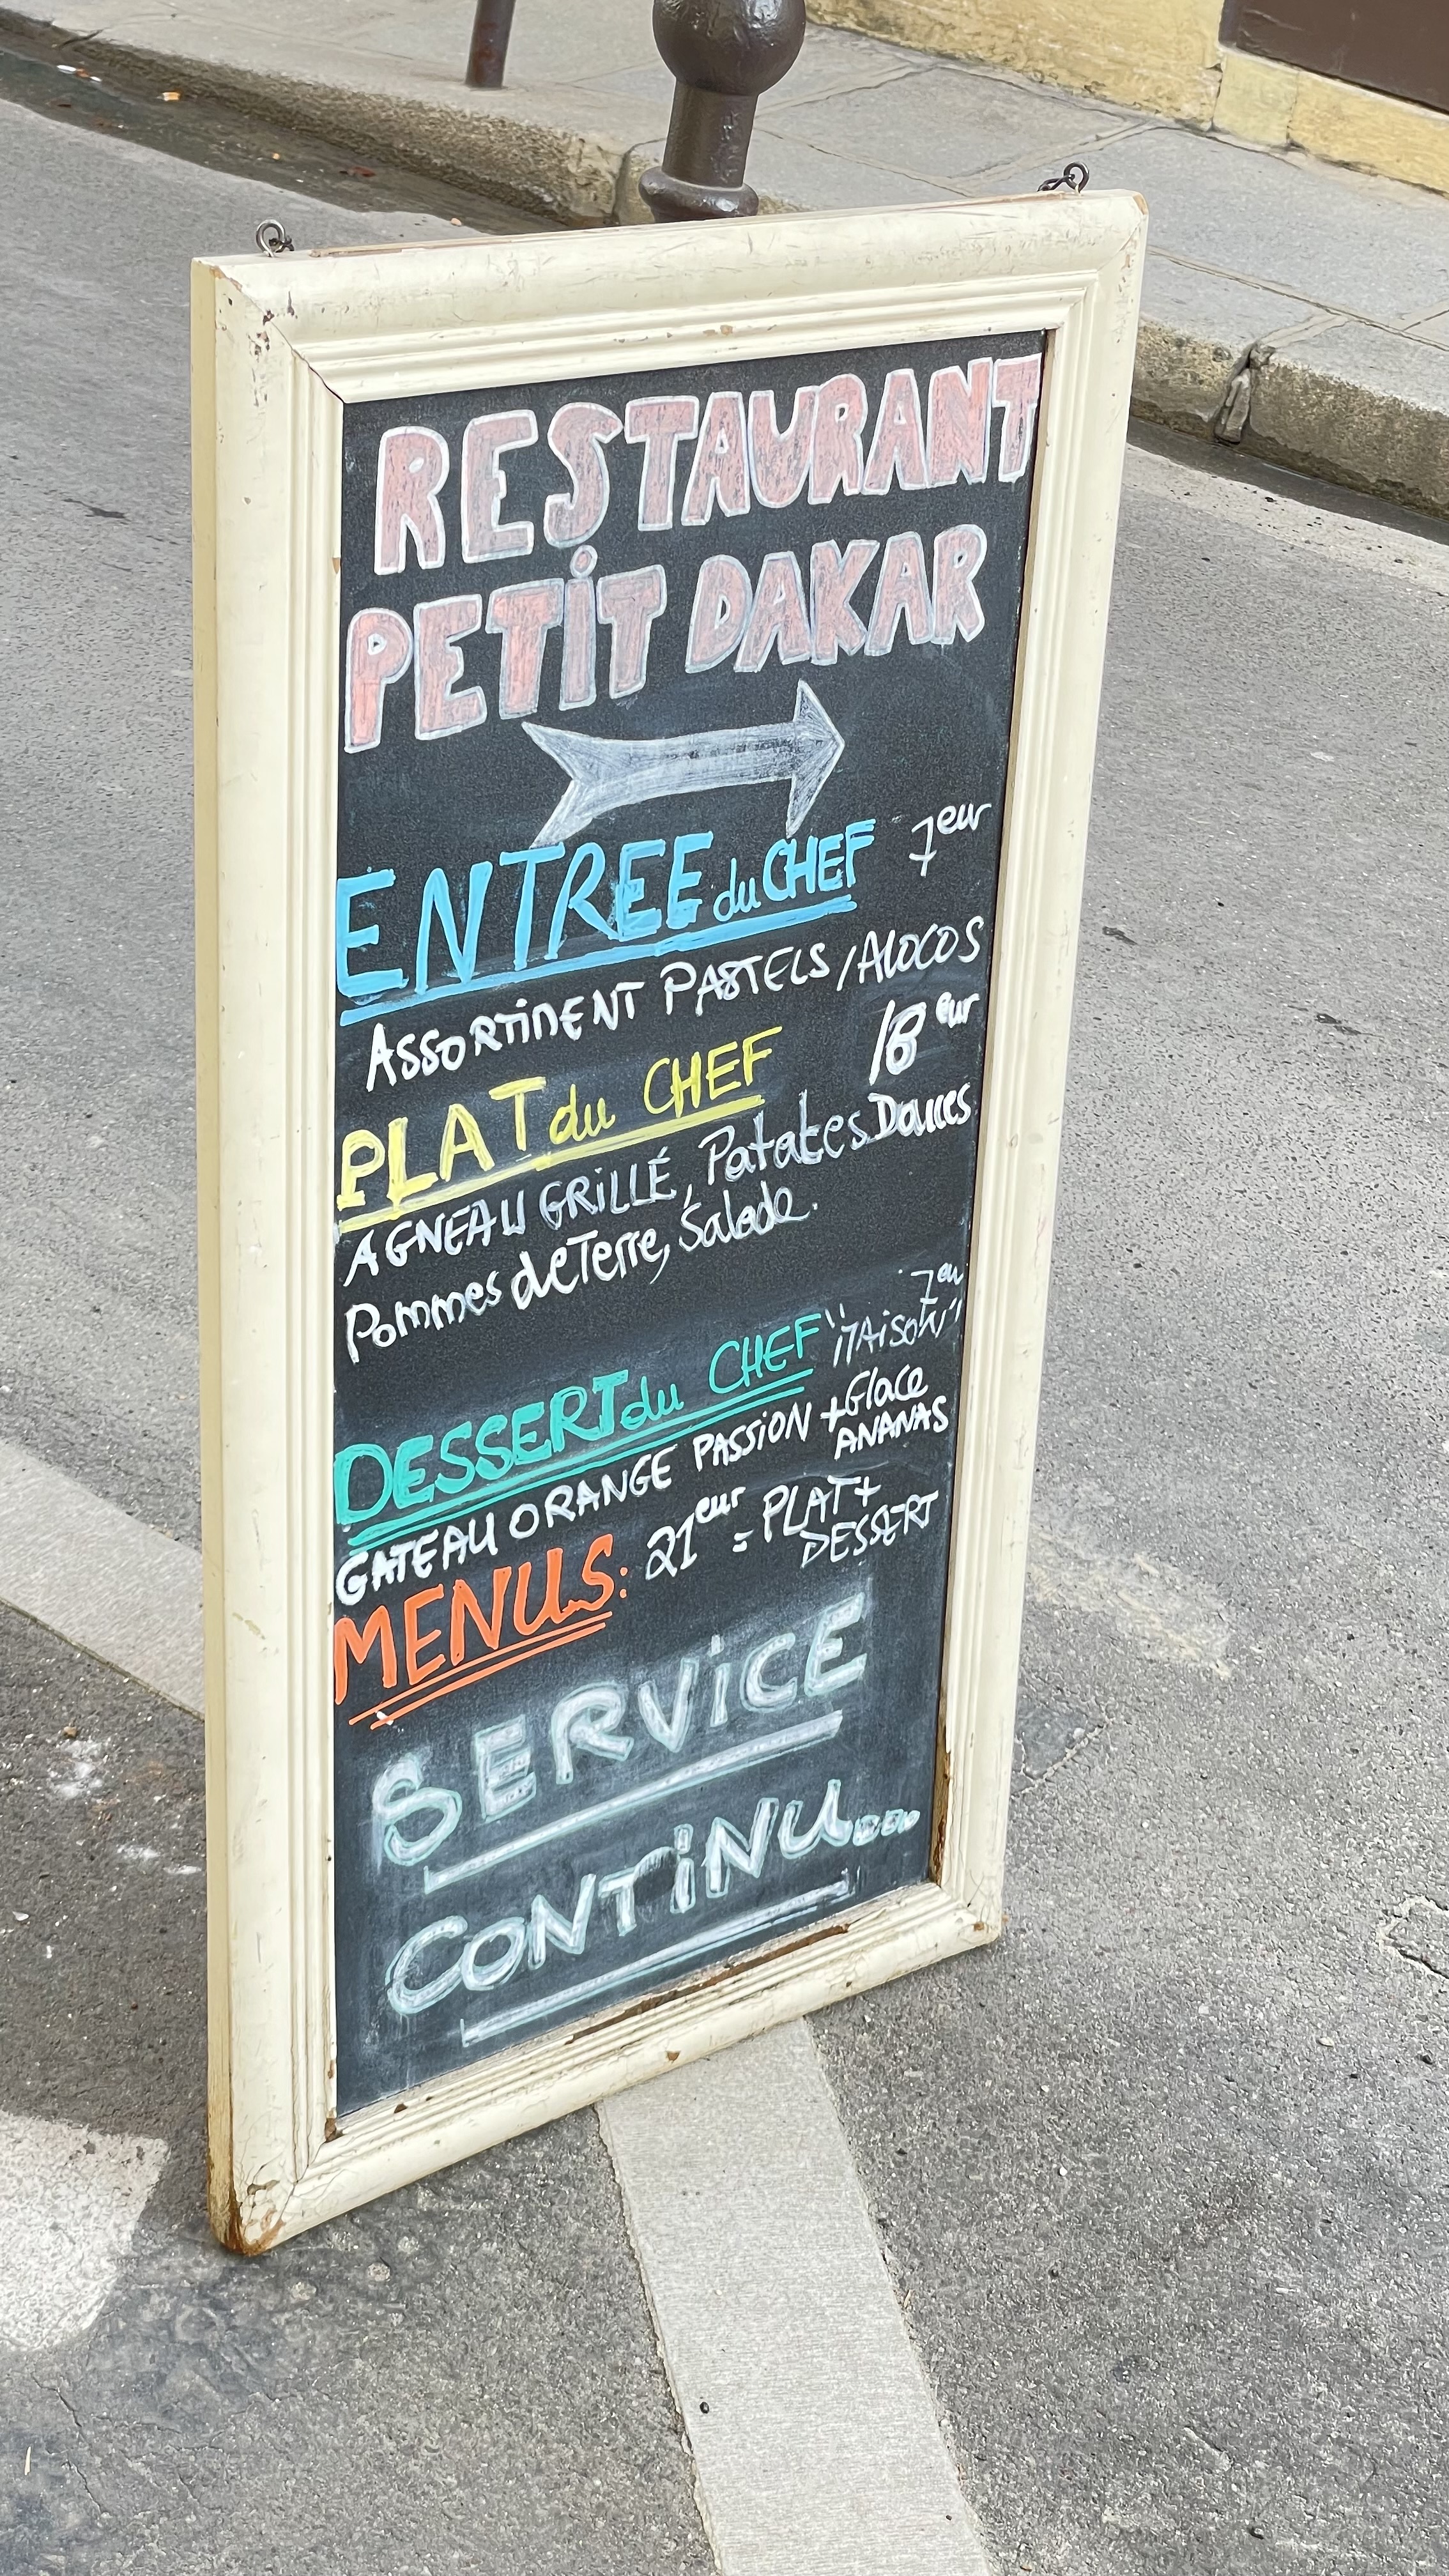 RESTAURANT
PETIT DAKAR
ENTREE du CHEF 7eur
ASSORTIMENT PASTELS / ALOCOS
PLAT du CHEF 18 eur
AGNEAU GRILLÉ, Patates Douces
Pommes de Terre, Salade.
7eu
DESSERT du CHEF "MAISON"
GATEAU ORANGE PASSION + Glace
ANANAS
MENUS: 21eur = PLAT +
DESSERT
SERVICE
CONTINU...